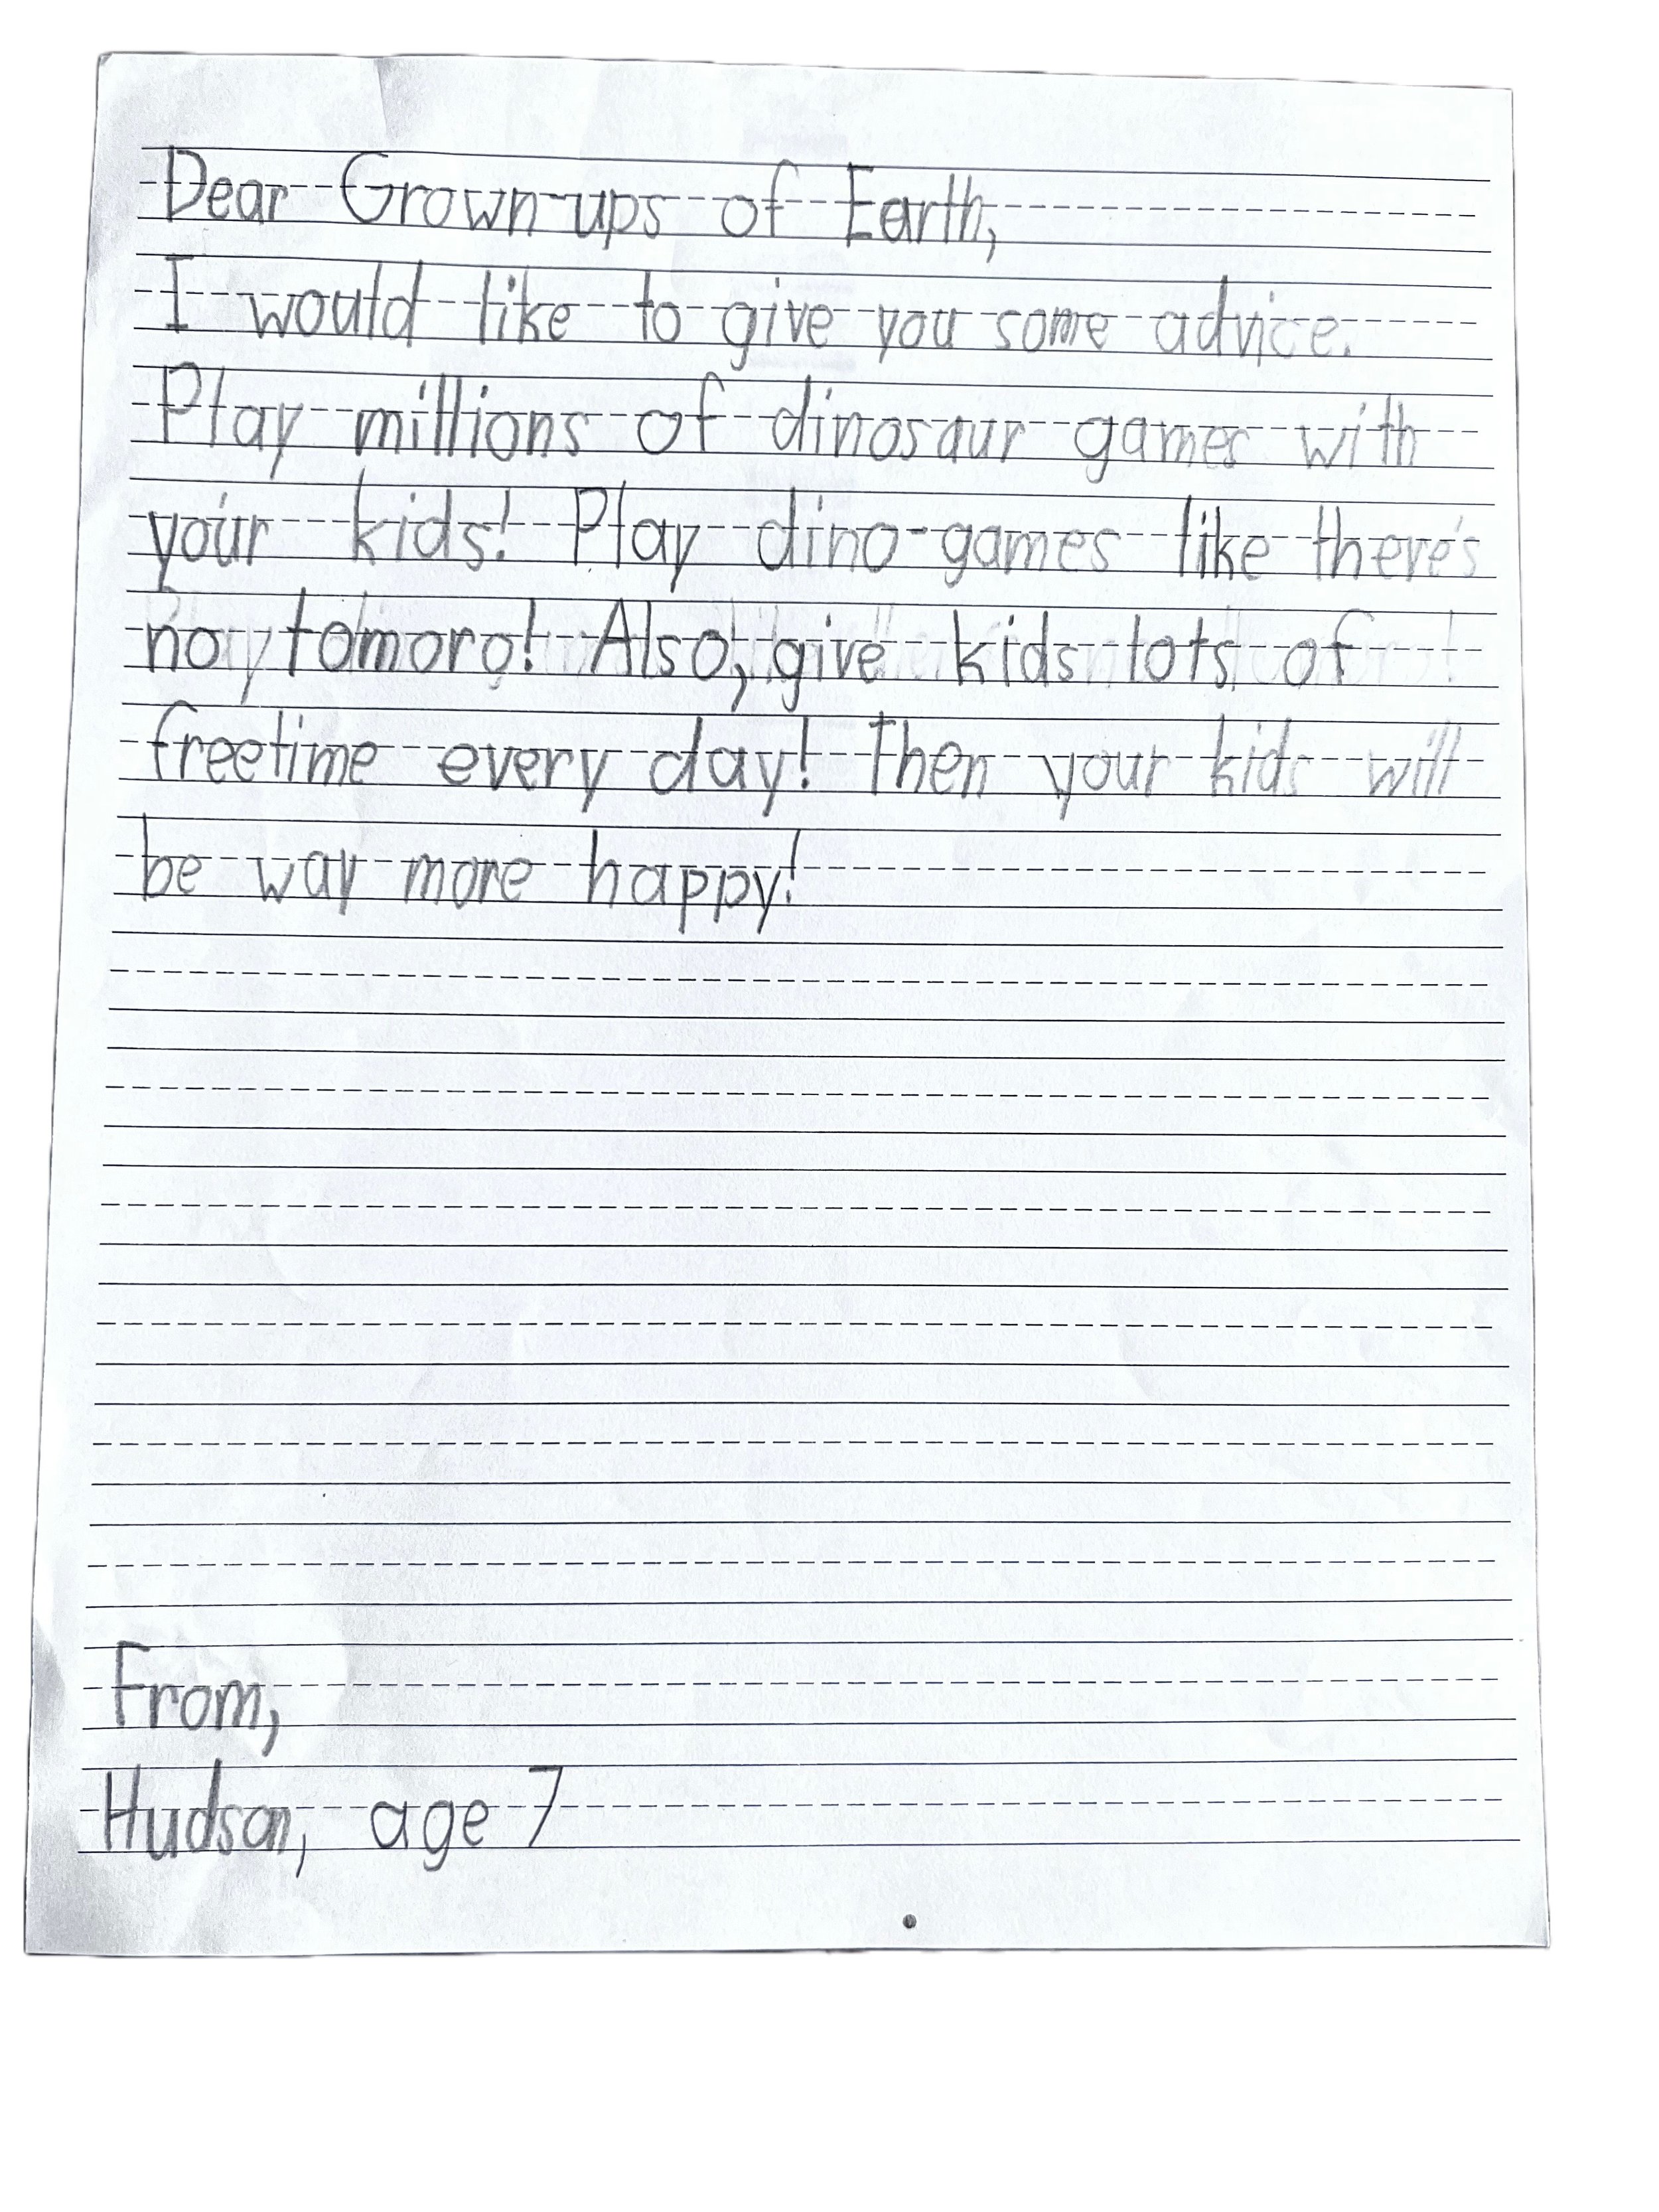 Dear Grown-ups of Earth,
I would like to give you some advice.
Play millions of dinosaur games with
your kids! Play dino-games like there's
no tomoro! Also, give kids lots of
freetime every day! Then your kids will
be way more happy!
From,
Hudson, age 7